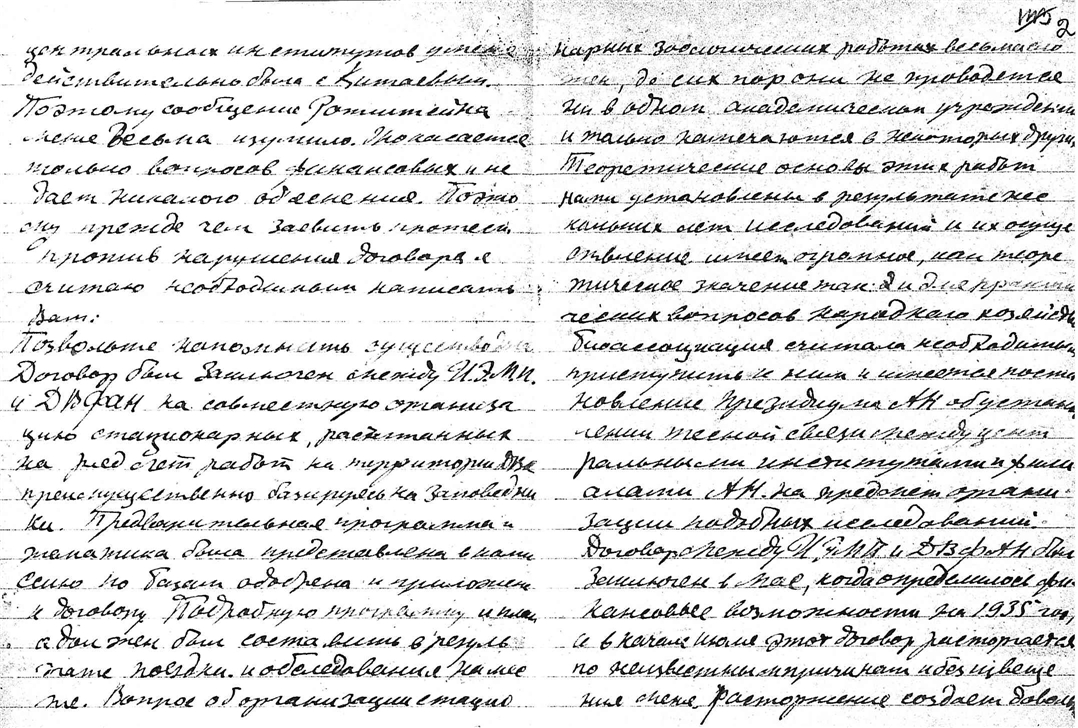 2
центральных институтов у меня
действительно была с Китаевым.
Поэтому сообщение Ротштейна
меня весьма изумило. Оно касается
только вопросов финансовых и не
дает никакого объяснения. Поэто
му прежде чем заявить протест
против нарушения договора я
считаю необходимым написать
Вам:
Позвольте напомнить существо дела
Договор был заключен между И.Э.М.П.
и ДВФАН на совместную организа
цию стационарных, расчитанных
на ряд лет работ на территории ДВК
преимущественно базируясь на заповедни
ки. Предварительная программа и
тематика была представлена в комис
сию по базам одобрена и приложена
к договору Подробную программу и план
я должен был составить в резуль
тате поездки и обследования на мес
те. Вопрос об организации стацио
нарных зоологических работах весьма сло
жен, до сих пор они не проводятся
ни в одном академическом учреждении
и только намечаются в некоторых других
Теоретические основы этих работ
нами установлены в результате нес
кольких лет исследований и их осуще
ствление имеет огромное, как теоре
тическое значение так и для практи
ческих вопросов народного хозяйства
Биоассоциация считала необходимым
приступить к ним и имеется поста
новление Президиума АН об установ
лении тесной связи между цент
ральными институтами и фили
алами АН. на предмет органи
зации подобных исследований.
Договор между ИЭМП и ДВФАН был
заключен в мае, когда определилось фи
нансовые возможности на 1935 год,
а в начале июля этот договор расторгается
по неизвестным причинам и без извеще
ния меня Расторжение создает доволь